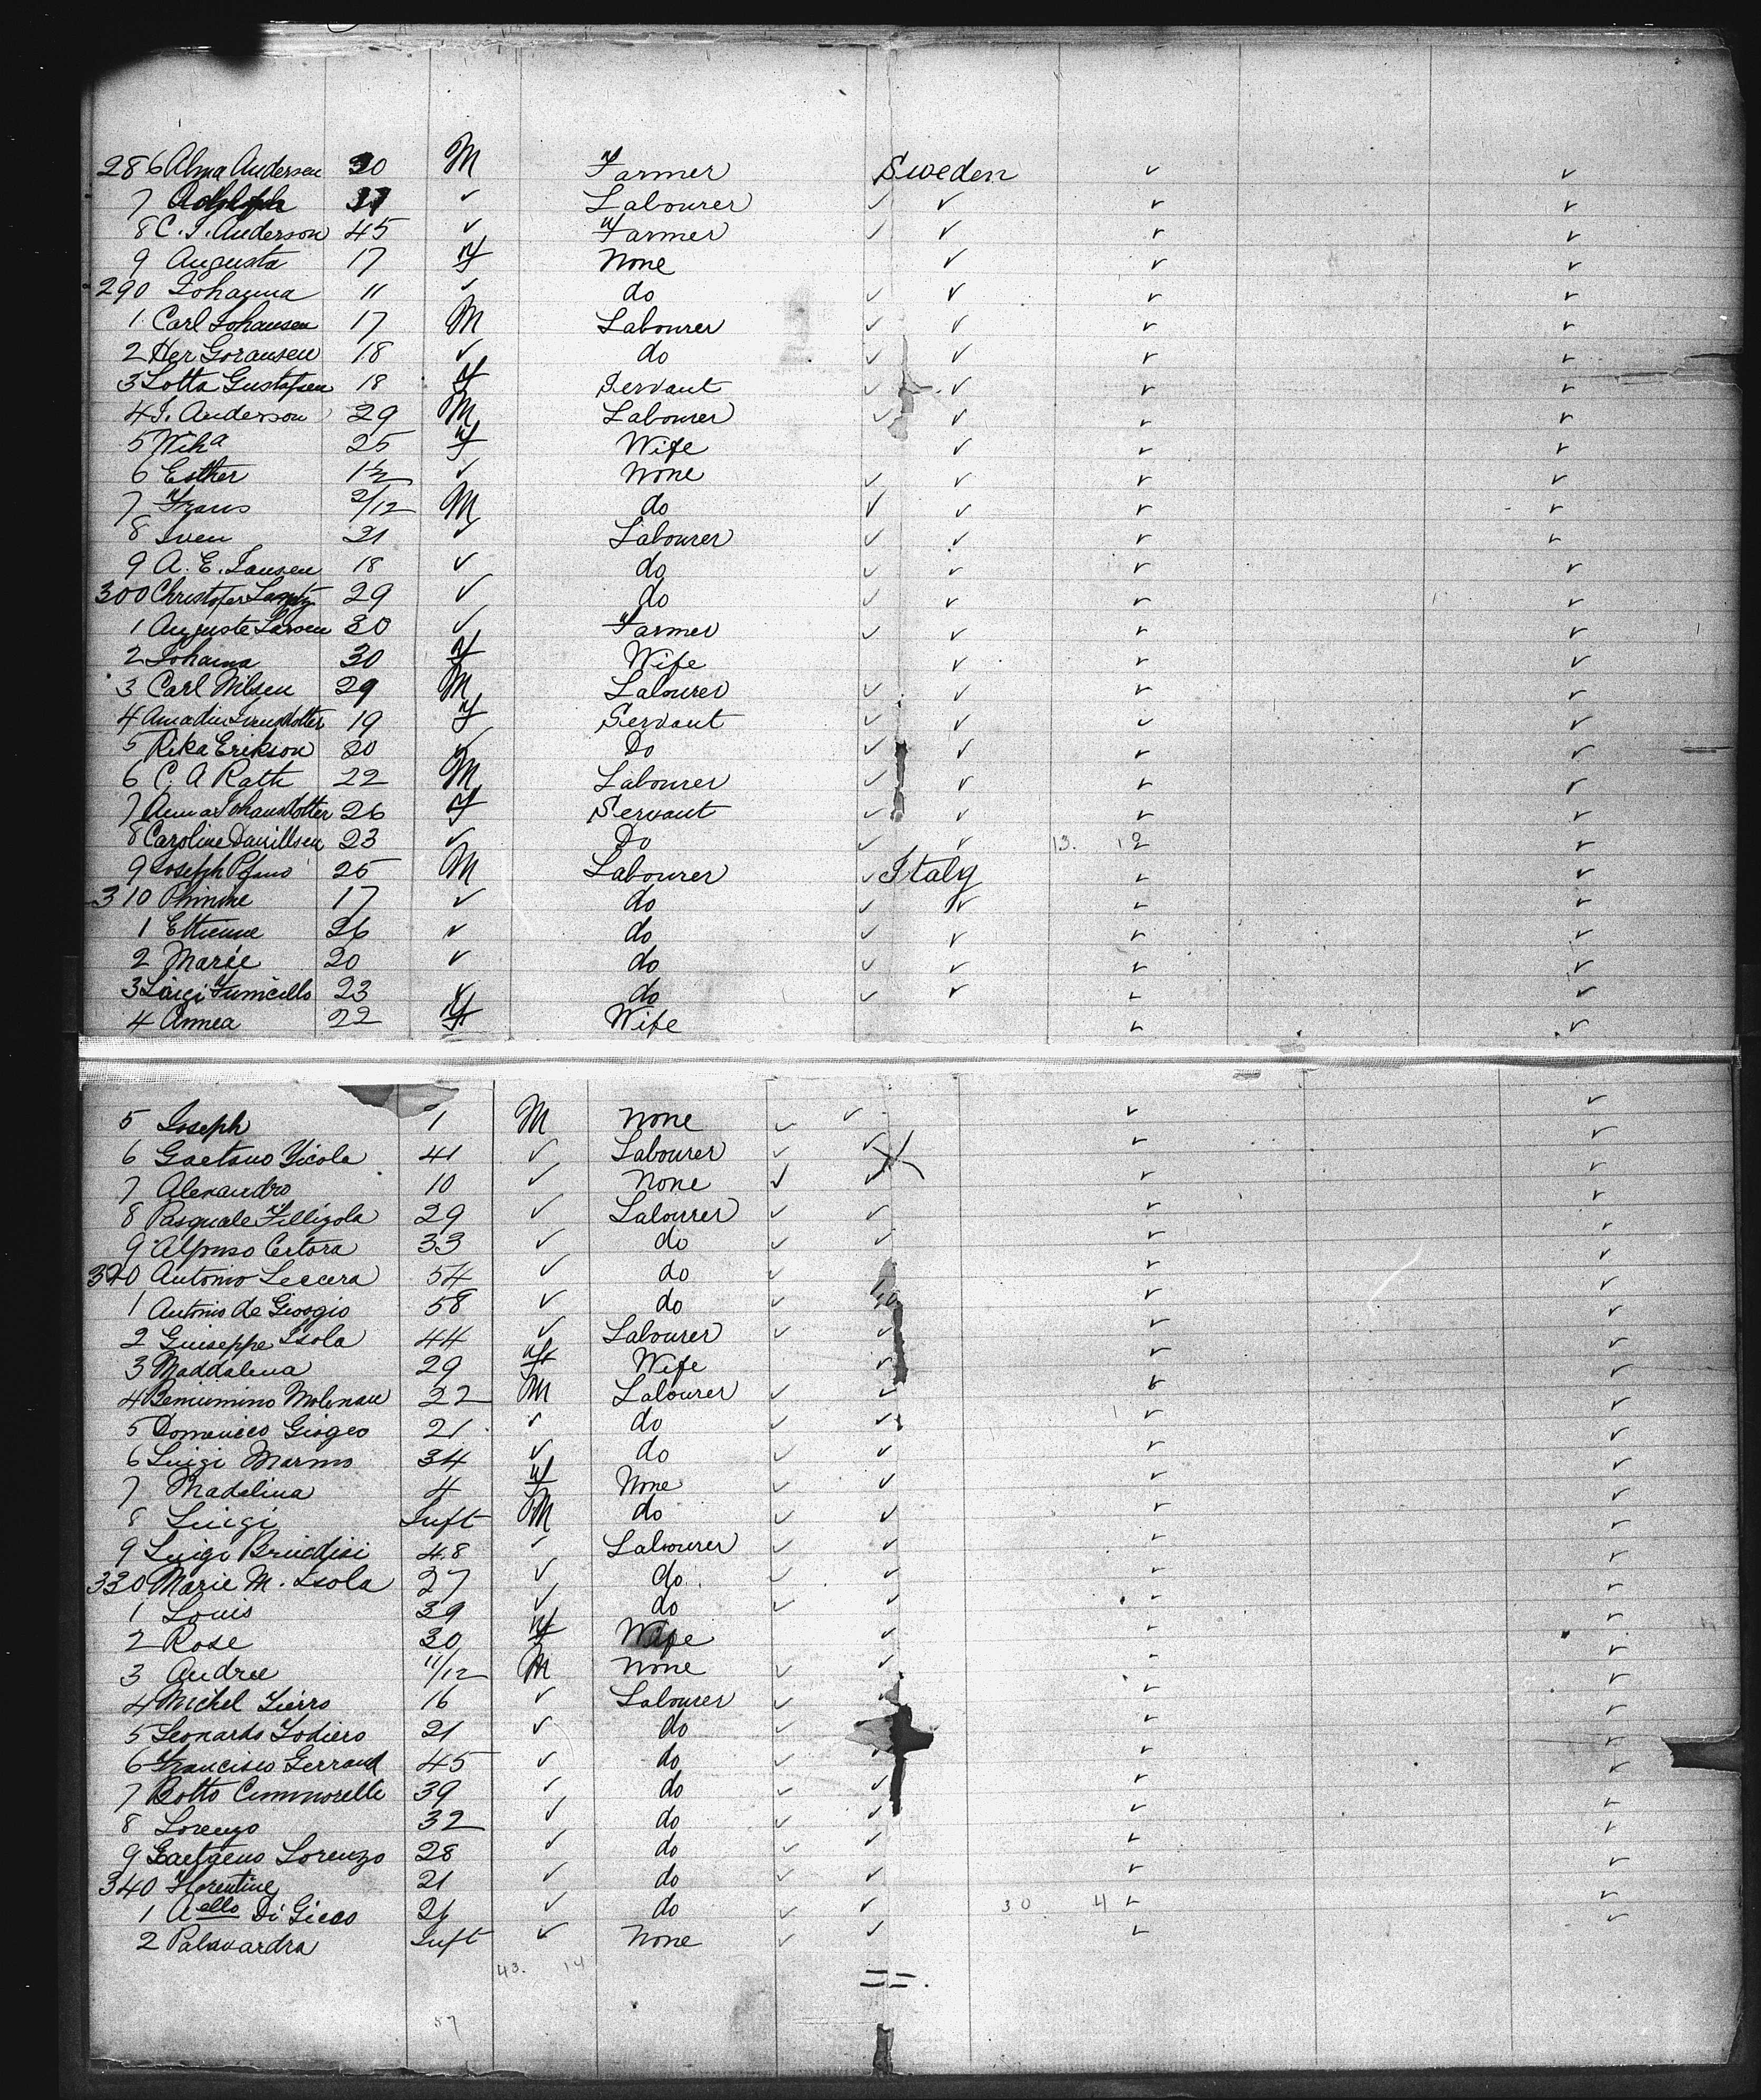 286 Alma Andersen 30 M Farmer Sweden ✓ ✓
7 Adolph ✓ Labourer ✓ ✓ ✓ ✓
8 C. J. Anderson 45 ✓ Farmer ✓ ✓ ✓ ✓
9 Augusta 17 F None ✓ ✓ ✓
290 Johanna 11 ✓ do ✓ ✓ ✓ ✓
1 Carl Johansen 17 M Labourer ✓ ✓ ✓ ✓
2 Per Goransen 18 ✓ do ✓ ✓ ✓ ✓
3 Lotta Gustafsen 18 F Servant ✓ ✓ ✓ ✓
4 J. Anderson 29 M Labourer ✓ ✓ ✓ ✓
5 25 F Wife ✓ ✓ ✓
6 Esther 1½ ✓ None ✓ ✓ ✓ ✓
7 Frans 2/12 M do ✓ ✓ ✓ ✓
8 Sven 21 ✓ Labourer ✓ ✓ ✓ ✓
9 A. E. Jansen 18 ✓ do ✓ ✓ ✓ ✓
300 Christofer 29 ✓ do ✓ ✓ ✓ ✓
1 Auguste Larsen 30 ✓ Farmer ✓ ✓ ✓ ✓
2 Johanna 30 F Wife ✓ ✓ ✓
3 Carl Nilsen 29 M Labourer ✓ ✓ ✓ ✓
4 19 F Servant ✓ ✓ ✓ ✓
5 Rika Erikson 20 ✓ Do ✓ ✓ ✓ ✓
6 C. A Rath 22 M Labourer ✓ ✓ ✓ ✓
7 Anna Johansdotter 26 F Servant ✓ ✓ ✓ ✓
8 Caroline Danillsen 23 ✓ Do ✓ ✓ 13. 12 ✓
9 Joseph 25 M Labourer ✓ Italy ✓ ✓
310 17 ✓ do ✓ ✓ ✓ ✓
1 Ettienne 26 ✓ do ✓ ✓ ✓ ✓
2 Marie 20 ✓ do ✓ ✓ ✓ ✓
3 Luigi Funicello 23 ✓ do ✓ ✓ ✓ ✓
4 Annea 22 F Wife ✓ ✓
5 Joseph 1 M None ✓ ✓ ✓ ✓
6 Gaetano Yicola 41 ✓ Labourer ✓ ✓ ✓ ✓
7 Alexandro 10 ✓ None ✓ ✓ ✓ ✓
8 Pasquale Filligola 29 ✓ Labourer ✓ ✓ ✓ ✓
9 Alfonso Certora 33 ✓ do ✓ ✓ ✓ ✓
320 Antonio Leccera 54 ✓ do ✓ ✓ ✓
1 Antonio de Gioogio 58 ✓ do ✓ ✓ ✓
2 Guiseppe Isola 44 ✓ Labourer ✓ ✓ ✓ ✓
3 Maddalena 29 F Wife ✓ ✓ ✓
4 22 M Labourer ✓ ✓ ✓ ✓
5 Domenico Giogeo 21 ✓ do ✓ ✓ ✓ ✓
6 Luigi Marino 34 ✓ do ✓ ✓ ✓ ✓
7 Madelina 4 F None ✓ ✓ ✓ ✓
8 Luigi Inft M do ✓ ✓ ✓ ✓
9 Luigi Brindisi 48 ✓ Labourer ✓ ✓ ✓ ✓
330 Marie M. Isola 27 ✓ do ✓ ✓ ✓ ✓
1 Louis 39 ✓ do ✓ ✓ ✓ ✓
2 Rose 30 F Wife ✓ ✓ ✓
3 Andree 11/12 M None ✓ ✓ ✓ ✓
4 Michel Fierro 16 ✓ Labourer ✓ ✓ ✓
5 Leonardo Lodiero 21 ✓ do ✓ ✓ ✓
6 Francisco Gerraud 45 ✓ do ✓ ✓ ✓ ✓
7 Botto Cummorelle 39 ✓ do ✓ ✓ ✓ ✓
8 Lorenzo 32 ✓ do ✓ ✓ ✓ ✓
9 Gaetaeno Lorenzo 28 ✓ do ✓ ✓ ✓ ✓
340 Florentine 21 ✓ do ✓ ✓ ✓ ✓
1 Aello Di Gicco 26 ✓ do ✓ ✓ 30 4 ✓ ✓
2 Palavardra Inft ✓ None ✓ ✓ ✓ ✓
43. 14
57